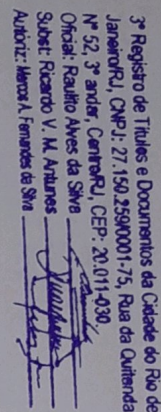 3º Registro de Títulos e Documentos da Cidade do Rio de
Janeiro/RJ, CNPJ: 27.150.259/0001-75, Rua da Quitanda
Nº 52, 3º andar, Centro/RJ, CEP: 20.011-030.
Oficial: Raulito Alves da Silva
Subst: Ricardo V. M. Antunes
Autoriz: Marcos A. Fernandes da Silva